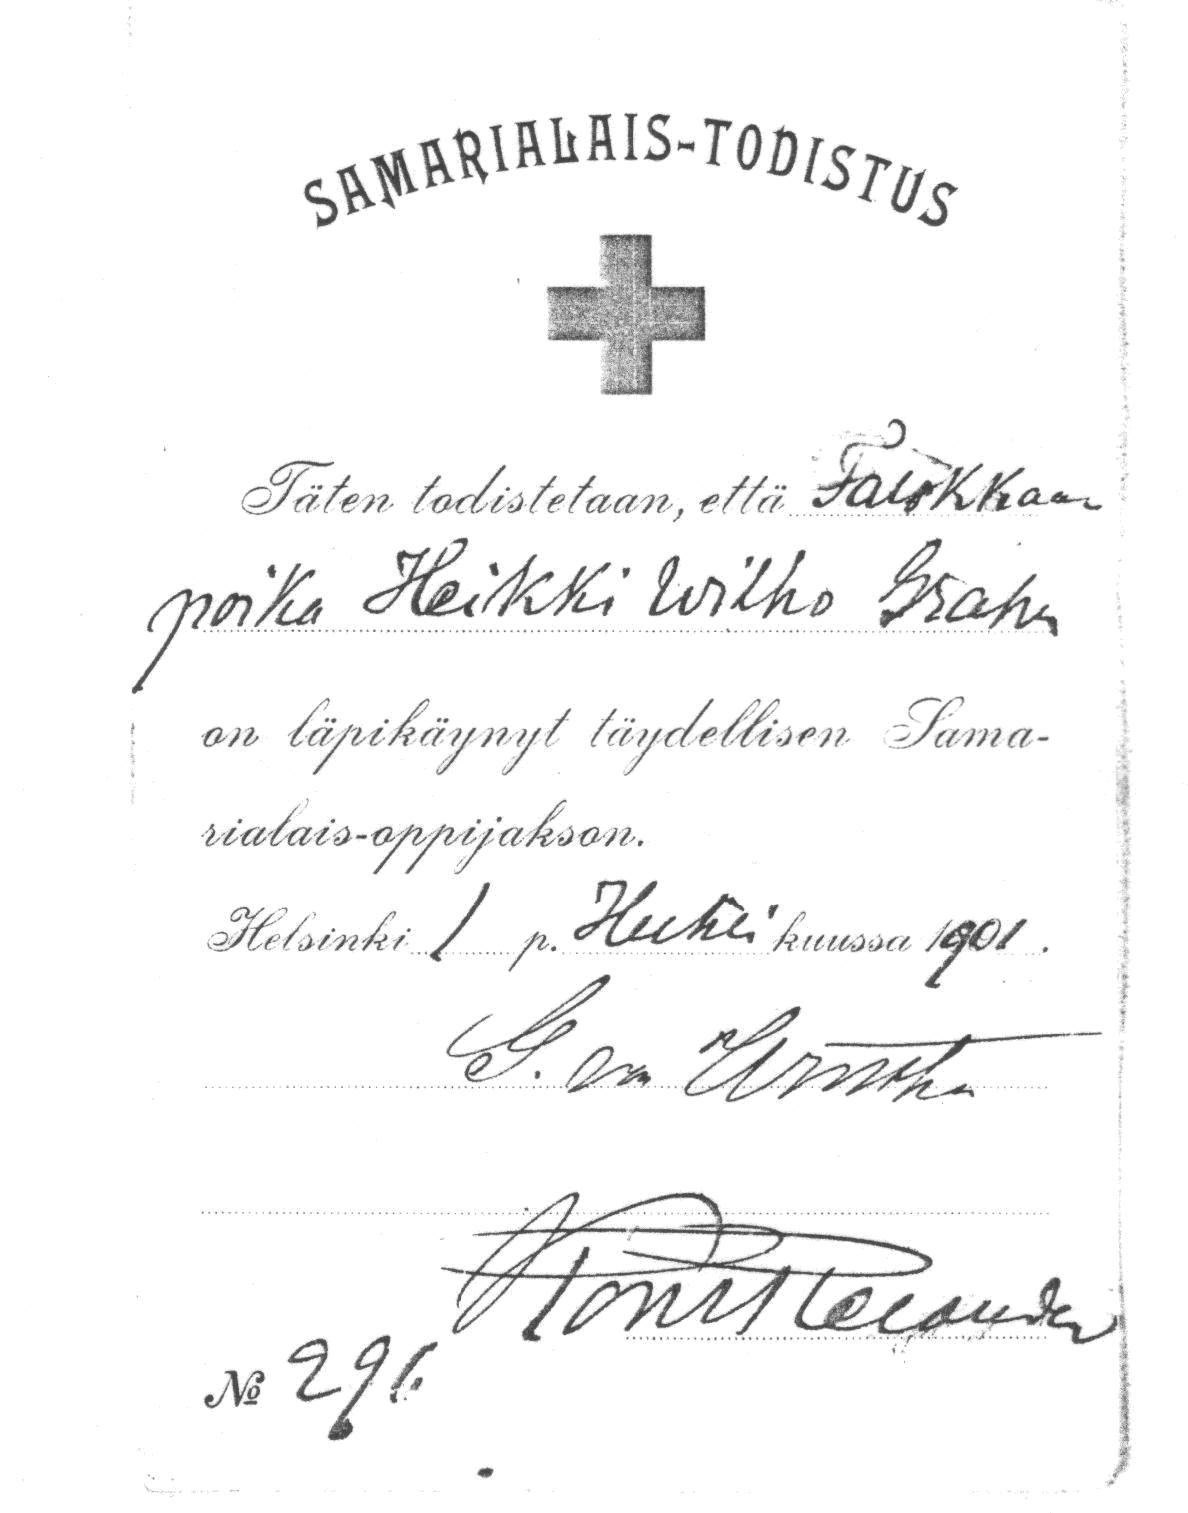 SAMARIALAIS-TODISTUS
Täten todistetaan, että Talokkaan
poika Heikki Wilho
on läpikäynyt täydellisen Sama-
rialais-oppijakson.
Helsinki 1 p. kuussa 1901.
G. von
№ 291.